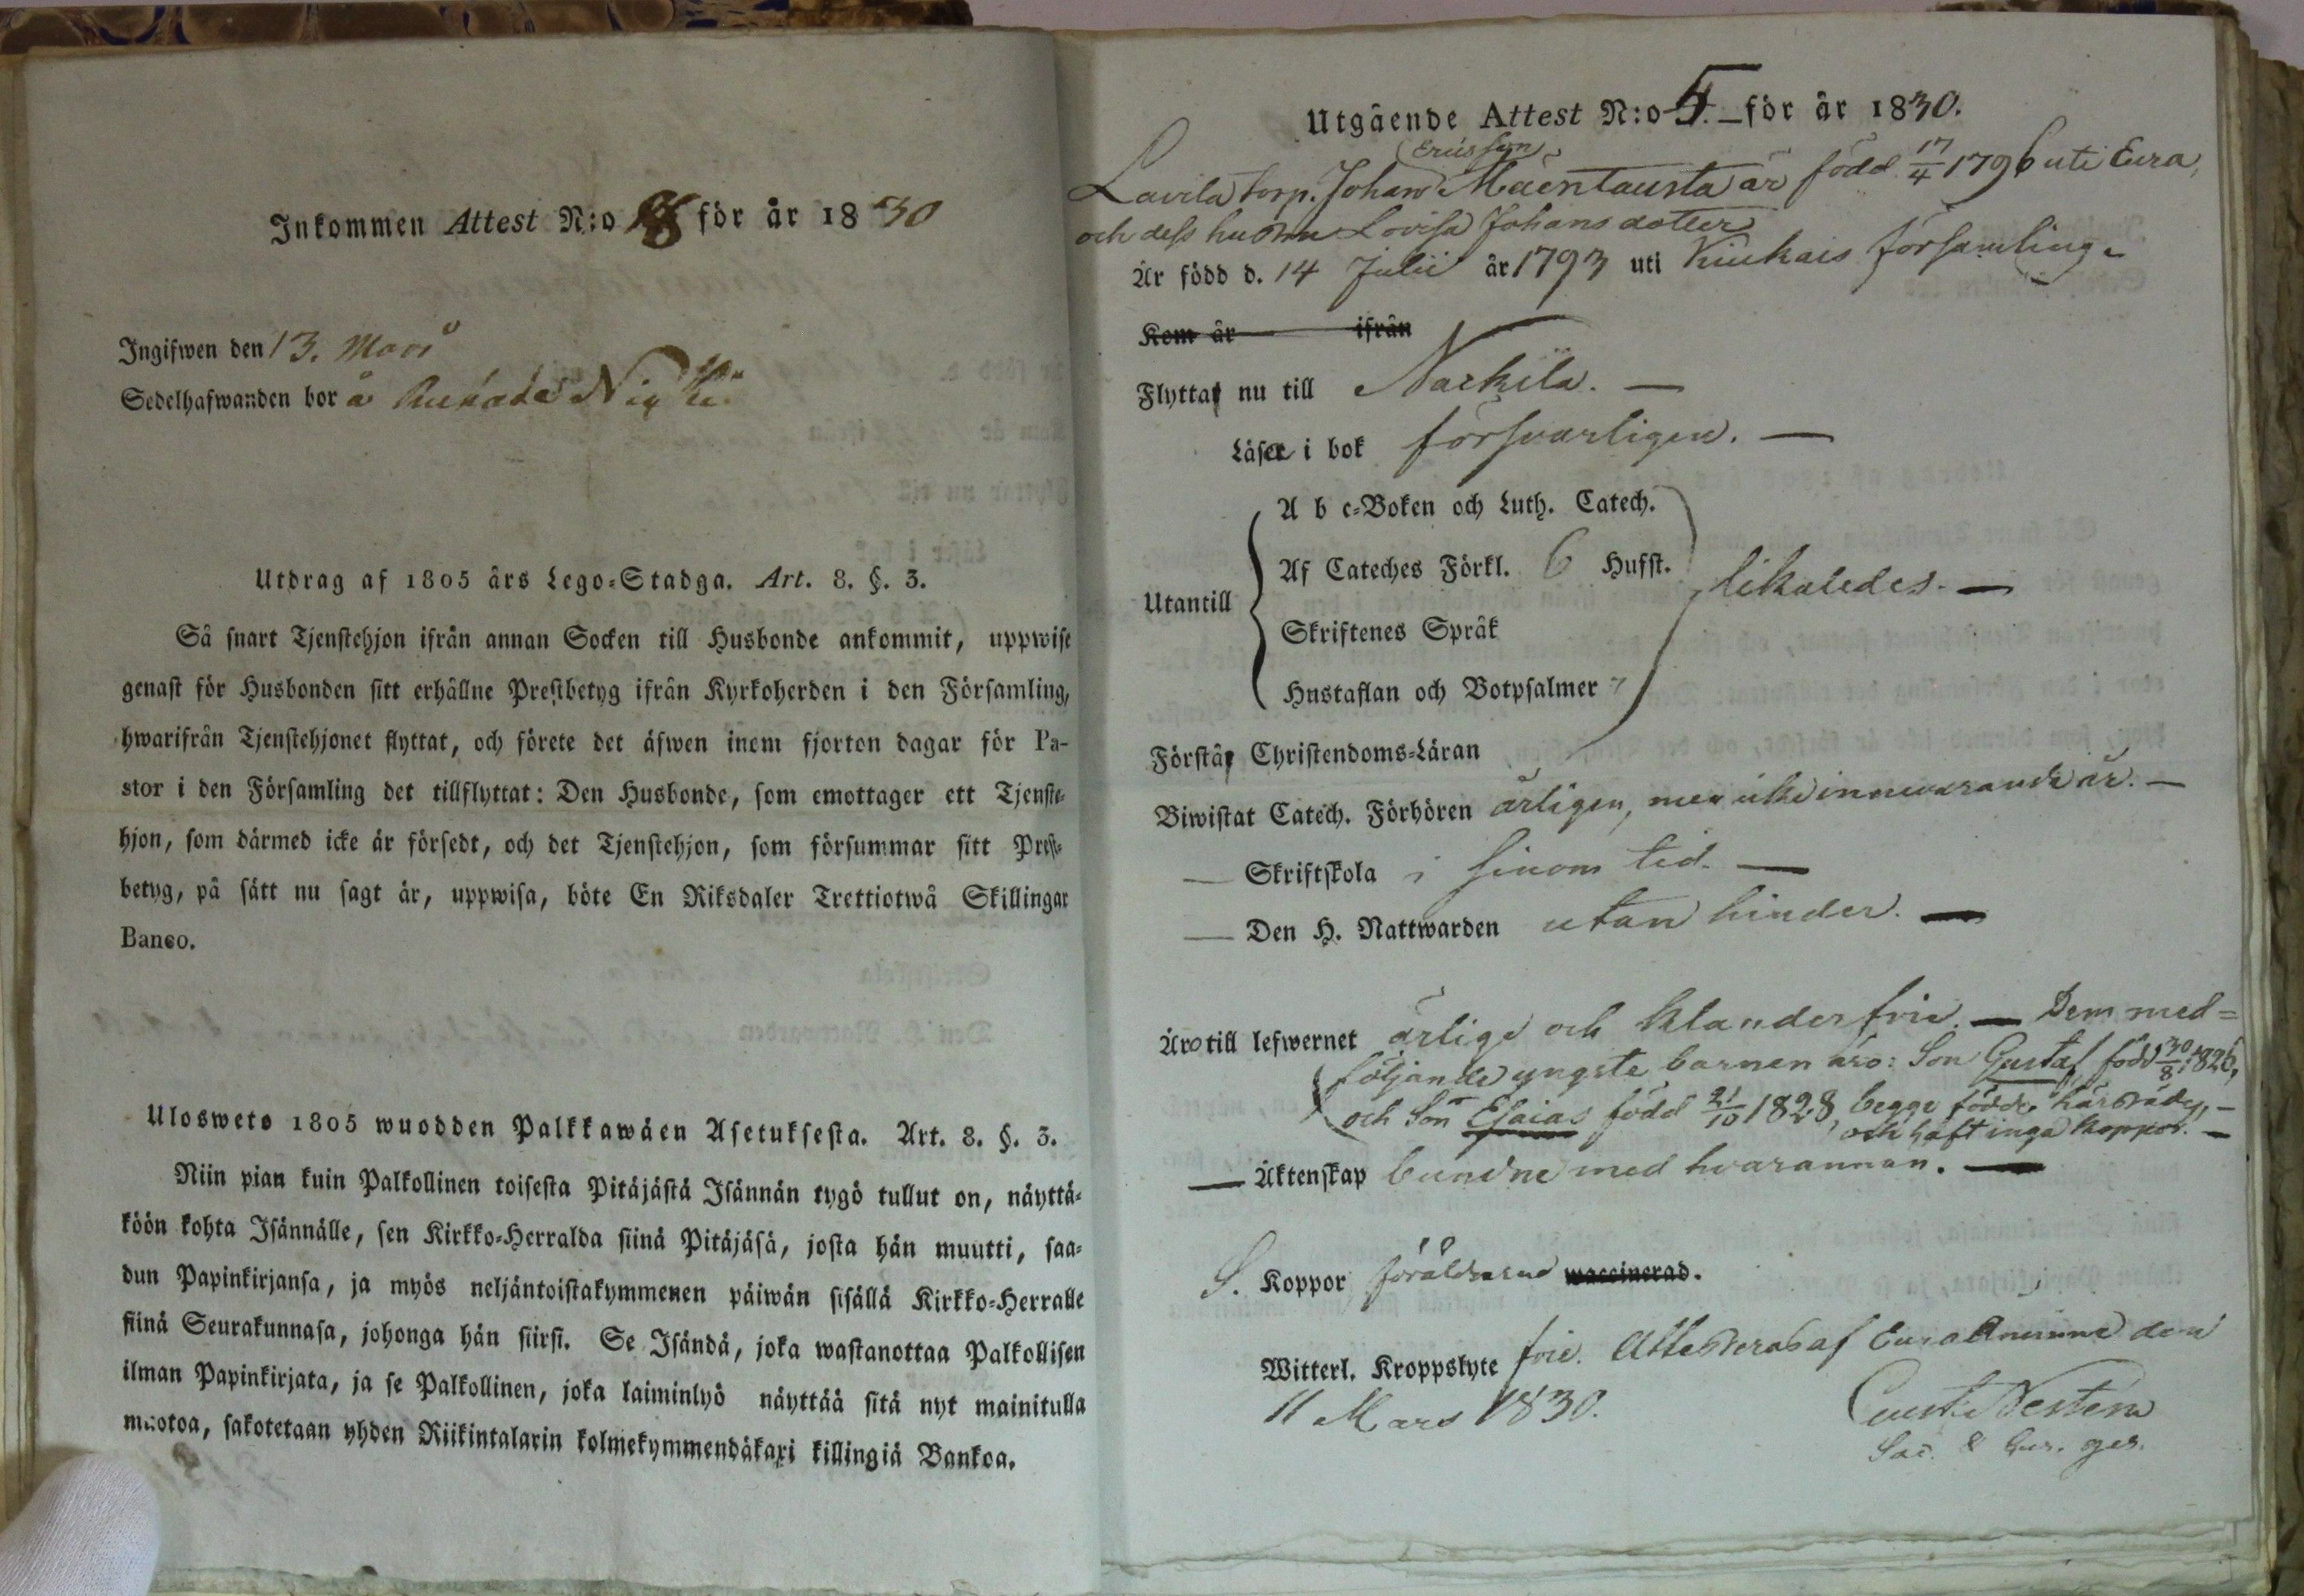 Inkommen Attest N:o 8 för år 1830
Ingifwen den 13. Mars
Sedelhafwanden bor å
Utdrag af 1805 års Lego-Stadga. Art. 8. §. 3.
Så snart Tjenstehjon ifrån annan Socken till Husbonde ankommit, uppwise
genast för Husbonden sitt erhållne Prestbetyg ifrån Kyrkoherden i den Församling,
hwarifrån Tjenstehjonet flyttat, och förete det äfwen inom fjorton dagar för Pa-
stor i den Församling det tillflyttat: Den Husbonde, som emottager ett Tjenste-
hjon, som därmed icke är försedt, och det Tjenstehjon, som försummar sitt Prest-
betyg, på sätt nu sagt är, uppwisa, böte En Riksdaler Trettiotwå Skillingar
Banco.
Ulosweto 1805 wuodden Palkkawäen Asetuksesta. Art. 8. §. 3.
Niin pian kuin Palkollinen toisesta Pitäjästä Isännän tygö tullut on, näyttä-
köön kohta Isännälle, sen Kirkko-Herralda siinä Pitäjäsä, josta hän muutti, saa-
dun Papinkirjansa, ja myös neljäntoistakymmenen päiwän sisällä Kirkko-Herralle
siinä Seurakunnasa, johonga hän siirsi. Se Isändä, joka wastanottaa Palkollisen
ilman Papinkirjata, ja se Palkollinen, joka laiminlyö näyttää sitä nyt mainitulla
muotoa, sakotetaan yhden Riikintalarin kolmekymmendäkaxi killingiä Bankoa.
Utgående Attest N:o 5. för år 1830.
Ericsson
Lavila torp. Johan Mäentausta är född 17/4 1796 uti Eura,
och dess hustru Lovisa Johansdotter
Är född d. 14 Julii år 1793 uti Kiukais församling.
Kom år ifrån
Flyttar nu till Nackila. —
Läser i bok försvarligen. —
A b c-Boken och Luth. Catech.
Af Cateches Förkl. 6 Hufst.
Utantill likaledes. —
Skriftenes Språk
Hustaflan och Botpsalmer
Förstår Christendoms-Läran
Biwistat Catech. Förhören årligen, men icke innevarande år. —
— Skriftskola i sinom tid. —
— Den H. Nattwarden utan hinder. —
Äro till lefwernet ärlige och klanderfrie. — Dem med=
följande yngste barnen äro: Son Gustaf född 30/8 1826,
och Son Esaias född 21/10 1828, begge födde härstädes, —
och haft inga koppor. —
— Äktenskap bundne med hvarannan. —
Koppor föräldrarne waccinerad.
Witterl. Kroppslyte frie. Attesteras af Eura Aminne den
11 Mars 1830.